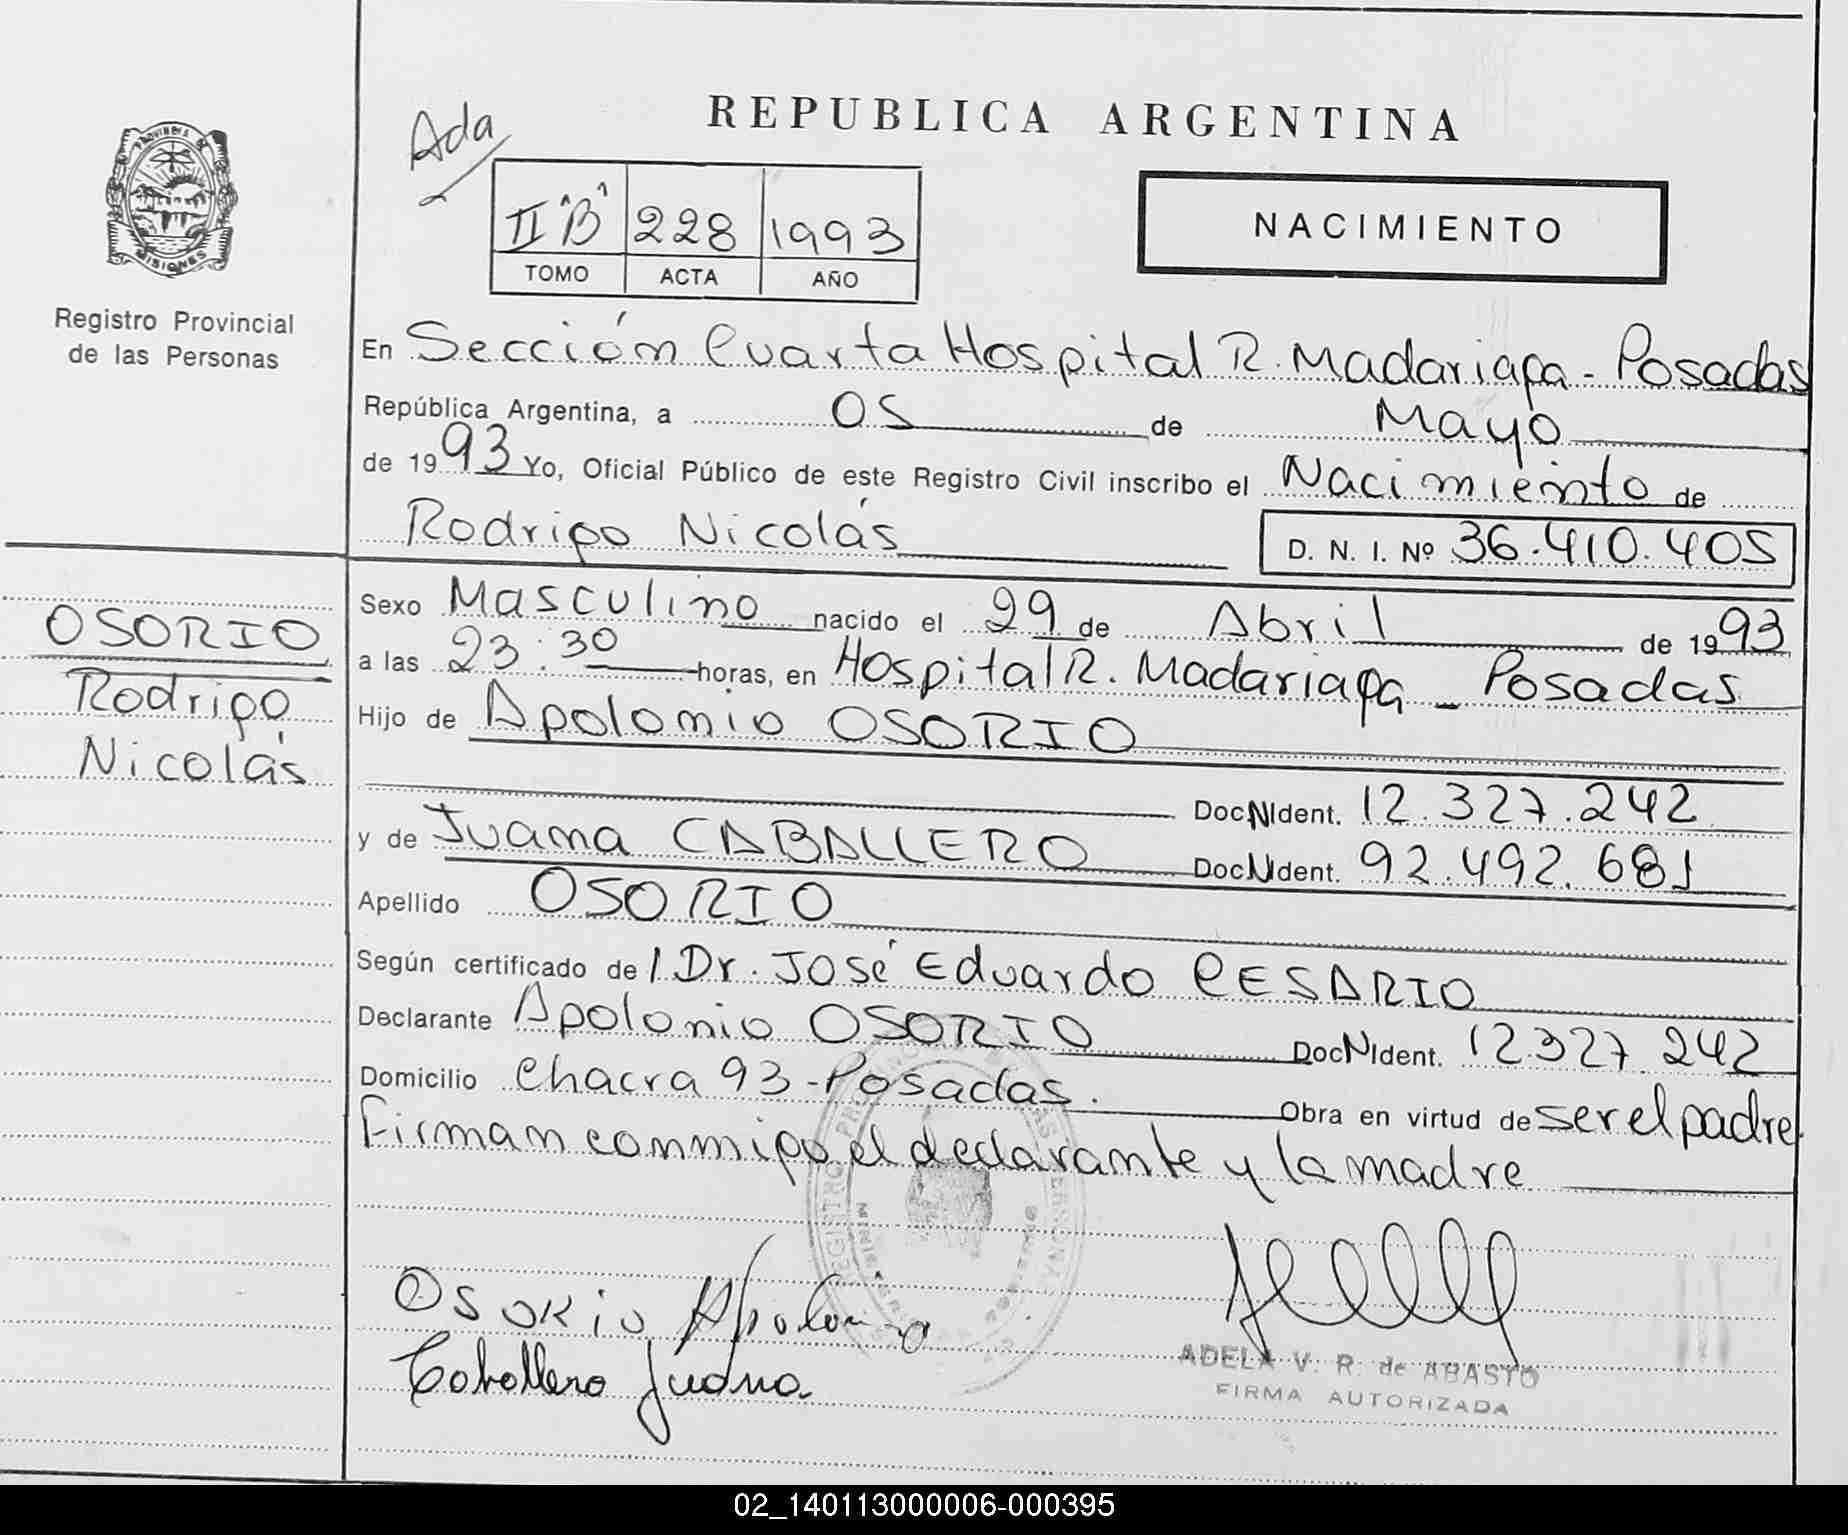 REPUBLICA ARGENTINA
Ada
PROVINCIA DE
MISIONES
Registro Provincial
de las Personas
II "B" 228 1993
TOMO ACTA AÑO
NACIMIENTO
En Sección Cuarta Hospital R. Madariaga - Posadas
República Argentina, a 05 de Mayo
de 1993 Yo, Oficial Público de este Registro Civil inscribo el Nacimiento de
Rodrigo Nicolás D. N. I. Nº 36.410.405
OSORIO
Rodrigo
Nicolás
Sexo Masculino nacido el 29 de Abril de 1993
a las 23:30 horas, en Hospital R. Madariaga - Posadas
Hijo de Apolonio OSORIO
Doc. N Ident. 12.327.242
y de Juana CABALLERO Doc. N Ident. 92.492.681
Apellido OSORIO
Según certificado del Dr. José Eduardo CESARIO
Declarante Apolonio OSORIO Doc. N Ident. 12327242
Domicilio Chacra 93 - Posadas. Obra en virtud de ser el padre
Firman conmigo el declarante y la madre
Osorio Apolonio
Caballero Juana.
ADELA V. R. de ABASTO
FIRMA AUTORIZADA
02_140113000006-000395